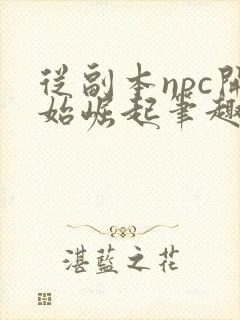 從副本npc開
始崛起筆趣
湛藍之花